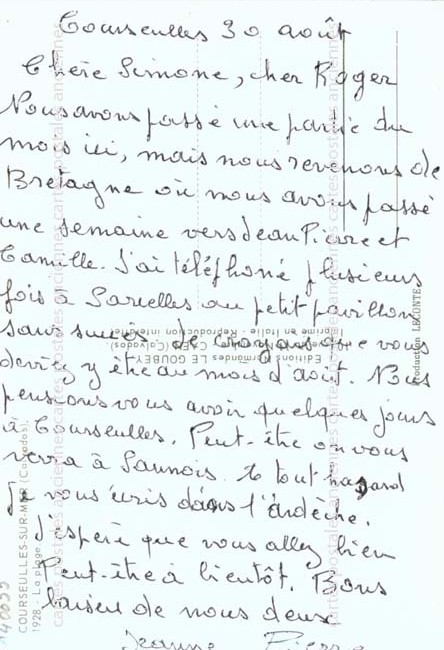 Courseulles 30 août
Chère Simone, cher Roger
Nous avons passé une partie du
mois ici, mais nous revenons de
Bretagne où nous avons passé
une semaine vers Jean Pierre et
Camille. J'ai téléphoné plusieurs
fois à Sarcelles au petit pavillon
sans succès. Je croyais que vous
devriez y être au mois d'août. Nous
pensions vous avoir quelques jours
à Courseulles. Peut-être on vous
verra à Sannois. A tout hasard
Je vous écris dans l'Ardèche.
J'espère que vous allez bien
Peut-être à bientôt. Bons
baisers de nous deux
Jeanne Pierre
COURSEULLES-SUR-MER (Calvados)
1928 - La plage
Editions Normandes LE GOUBEY
CAEN (Calvados)
Imprimé en Italie - Reproduction interdite
Production LECONTE
cartes postales anciennes